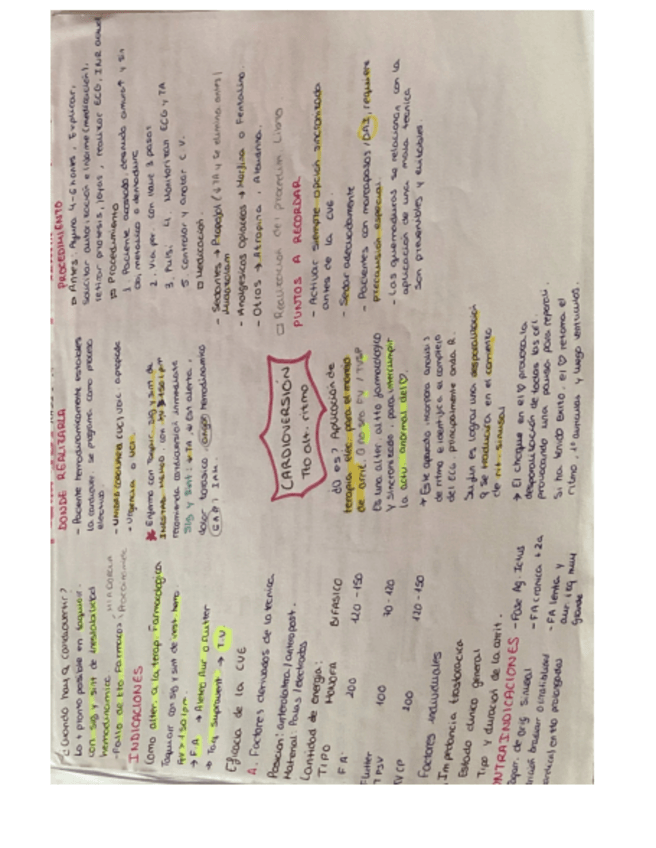 ¿Cuando hay q cardiovertir?
Lo + pronto posible en taquicar.
con sig y sint de inestabilidad
hemodinamica
- Fallo de tto Farmacos
INDICACIONES
Como alter. a la terap. Farmacologica
Taquicar con sig y sint de inest hemo.
→ F.A → Aleteo Aur o Flutter
→ Taq supravent → T.V
Eficacia de la CVE
A. Factores derivados de la tecnica
Posicion: anterolateral / anteropost.
Material: Palas / electrodos
Cantidad de energia:
TIPO MONOFA BIFASICO
FA 200 120 - 150
Flutter
TPSV 100 70 - 120
TVCP 200 120 - 150
Factores individuales
Impedancia trastoracica
Estado clinico general
Tipo y duracion de la arrit.
CONTRAINDICACIONES - Fase Ag. Ictus
- FA cronica + 2a
- FA lenta y
aur. izq muy
grande
DONDE REALIZARLA
- Paciente hemodinamicamente estables
la cardiover. se programa como proceso
electivo
- Urgencia o UCI.
* Enfermo con taquic. sig y sint de
recomienda cardioversion inmediata
Sig y sint: ↓ TA, ↓ est alerta,
dolor toracico, hemodinamico
CARDIOVERSIÓN
Tto alt. ritmo
¿Q es? Aplicación de
terapia elec. para el manejo
de arrit. q no sea FV / TVSP
Es una alter. al tto farmacologico
y sincronizado para interrumpir
la activ. anormal del ♡.
→ Este aparato incorpora analisis
de ritmo e identifica el complejo
del ECG principalmente onda R.
Su fin es lograr una despolarización
q se traduzca en el comienzo
de rit. sinusal
→ El choque en el ♡ provoca la
despolarización de todas las cel.
provocando una pausa para repolari.
Si ha tenido exito, el ♡ retoma el
ritmo, 1º auriculas y luego ventriculos
PROCEDIMIENTO
□ Antes: Ayuno 4-6 horas, Explicar,
solicitar autorización e informe (medicación),
retirar protesis, joyas, realizar ECG, INR actual
□ Procedimiento
1. Paciente acostado, desnudo cintura ↑ y sin
obj metalico o dentadura
2. Via per. con llave 3 pasos
3. Pulsi 4. Monitorizar ECG y TA
5. Controlar y anotar C.V.
□ Medicación.
- Sedantes → Propofol (↓ TA y se elimina antes)
Midazolam
- Analgesicos opiaceos → Morfina o Fentanilo.
- Otros → Atropina,
□ Realización del procedim. Libro
PUNTOS A RECORDAR
- Activar siempre opción sincronizada
antes de la CVE.
- Sedar adecuadamente
- Pacientes con marcapasos / DAI, requiere
precaución especial.
- Las quemaduras se relacionan con la
aplicación de una mala tecnica
son prevenibles y evitables.